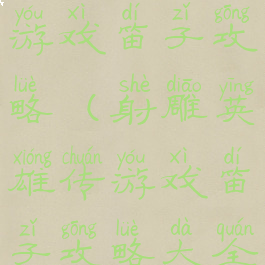 yóu xì dí zǐ gōng
游戏笛子攻
lüè shè diāo yīng
略(射雕英
xióng chuán yóu xì dí
雄传游戏笛
zǐ gōng lüè dà quán
子攻略大全